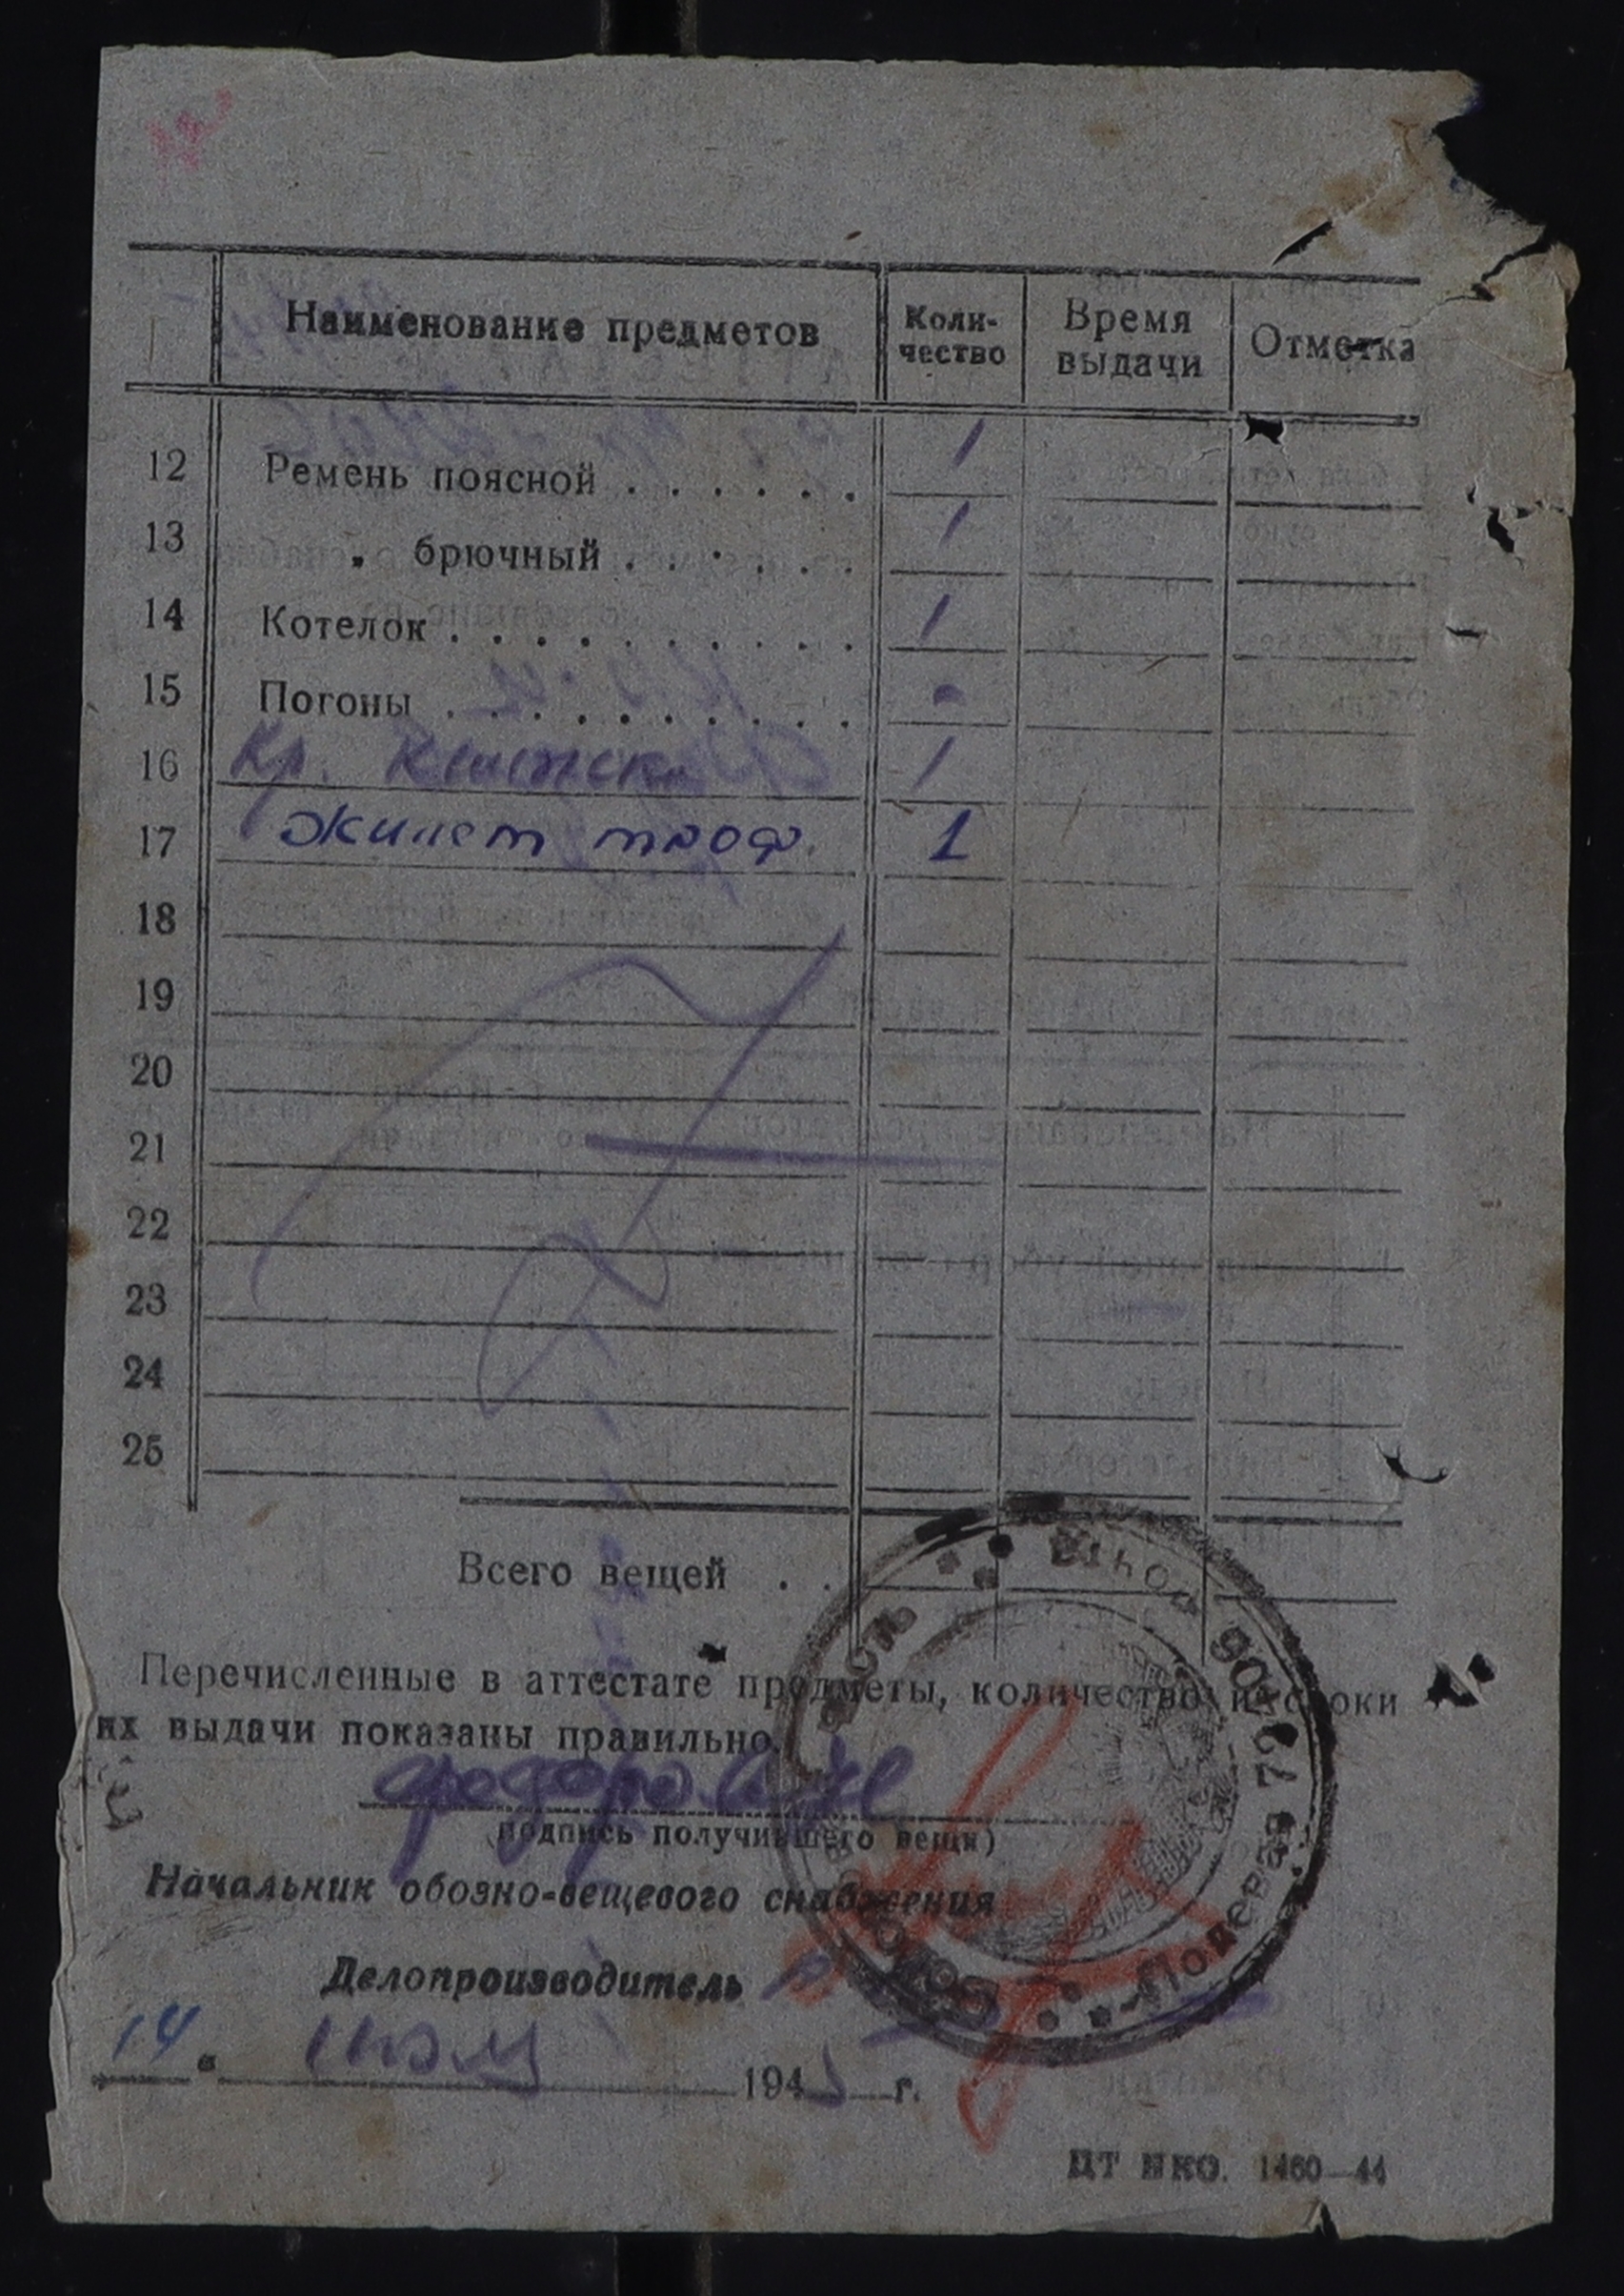 Наименование предметов Коли-чество Время выдачи Отметка
12 Ремень поясной . . . . . . 1
13 „ брючный . . . . . . 1
14 Котелок . . . . . . . . . . 1
15 Погоны . . . . . . . . . . -
16 Кр. Книжска 1
17 Жилет троф. 1
18
19
20
21
22
23
24
25
Всего вещей . .
Перечисленные в аттестате предметы, количество и сроки
их выдачи показаны правильно.
подпись получившего вещи)
Начальник обозно-вещевого снабжения
Делопроизводитель
14 " июля 1945 г.
ЦТ НКО. 1460—44
Полевая почта